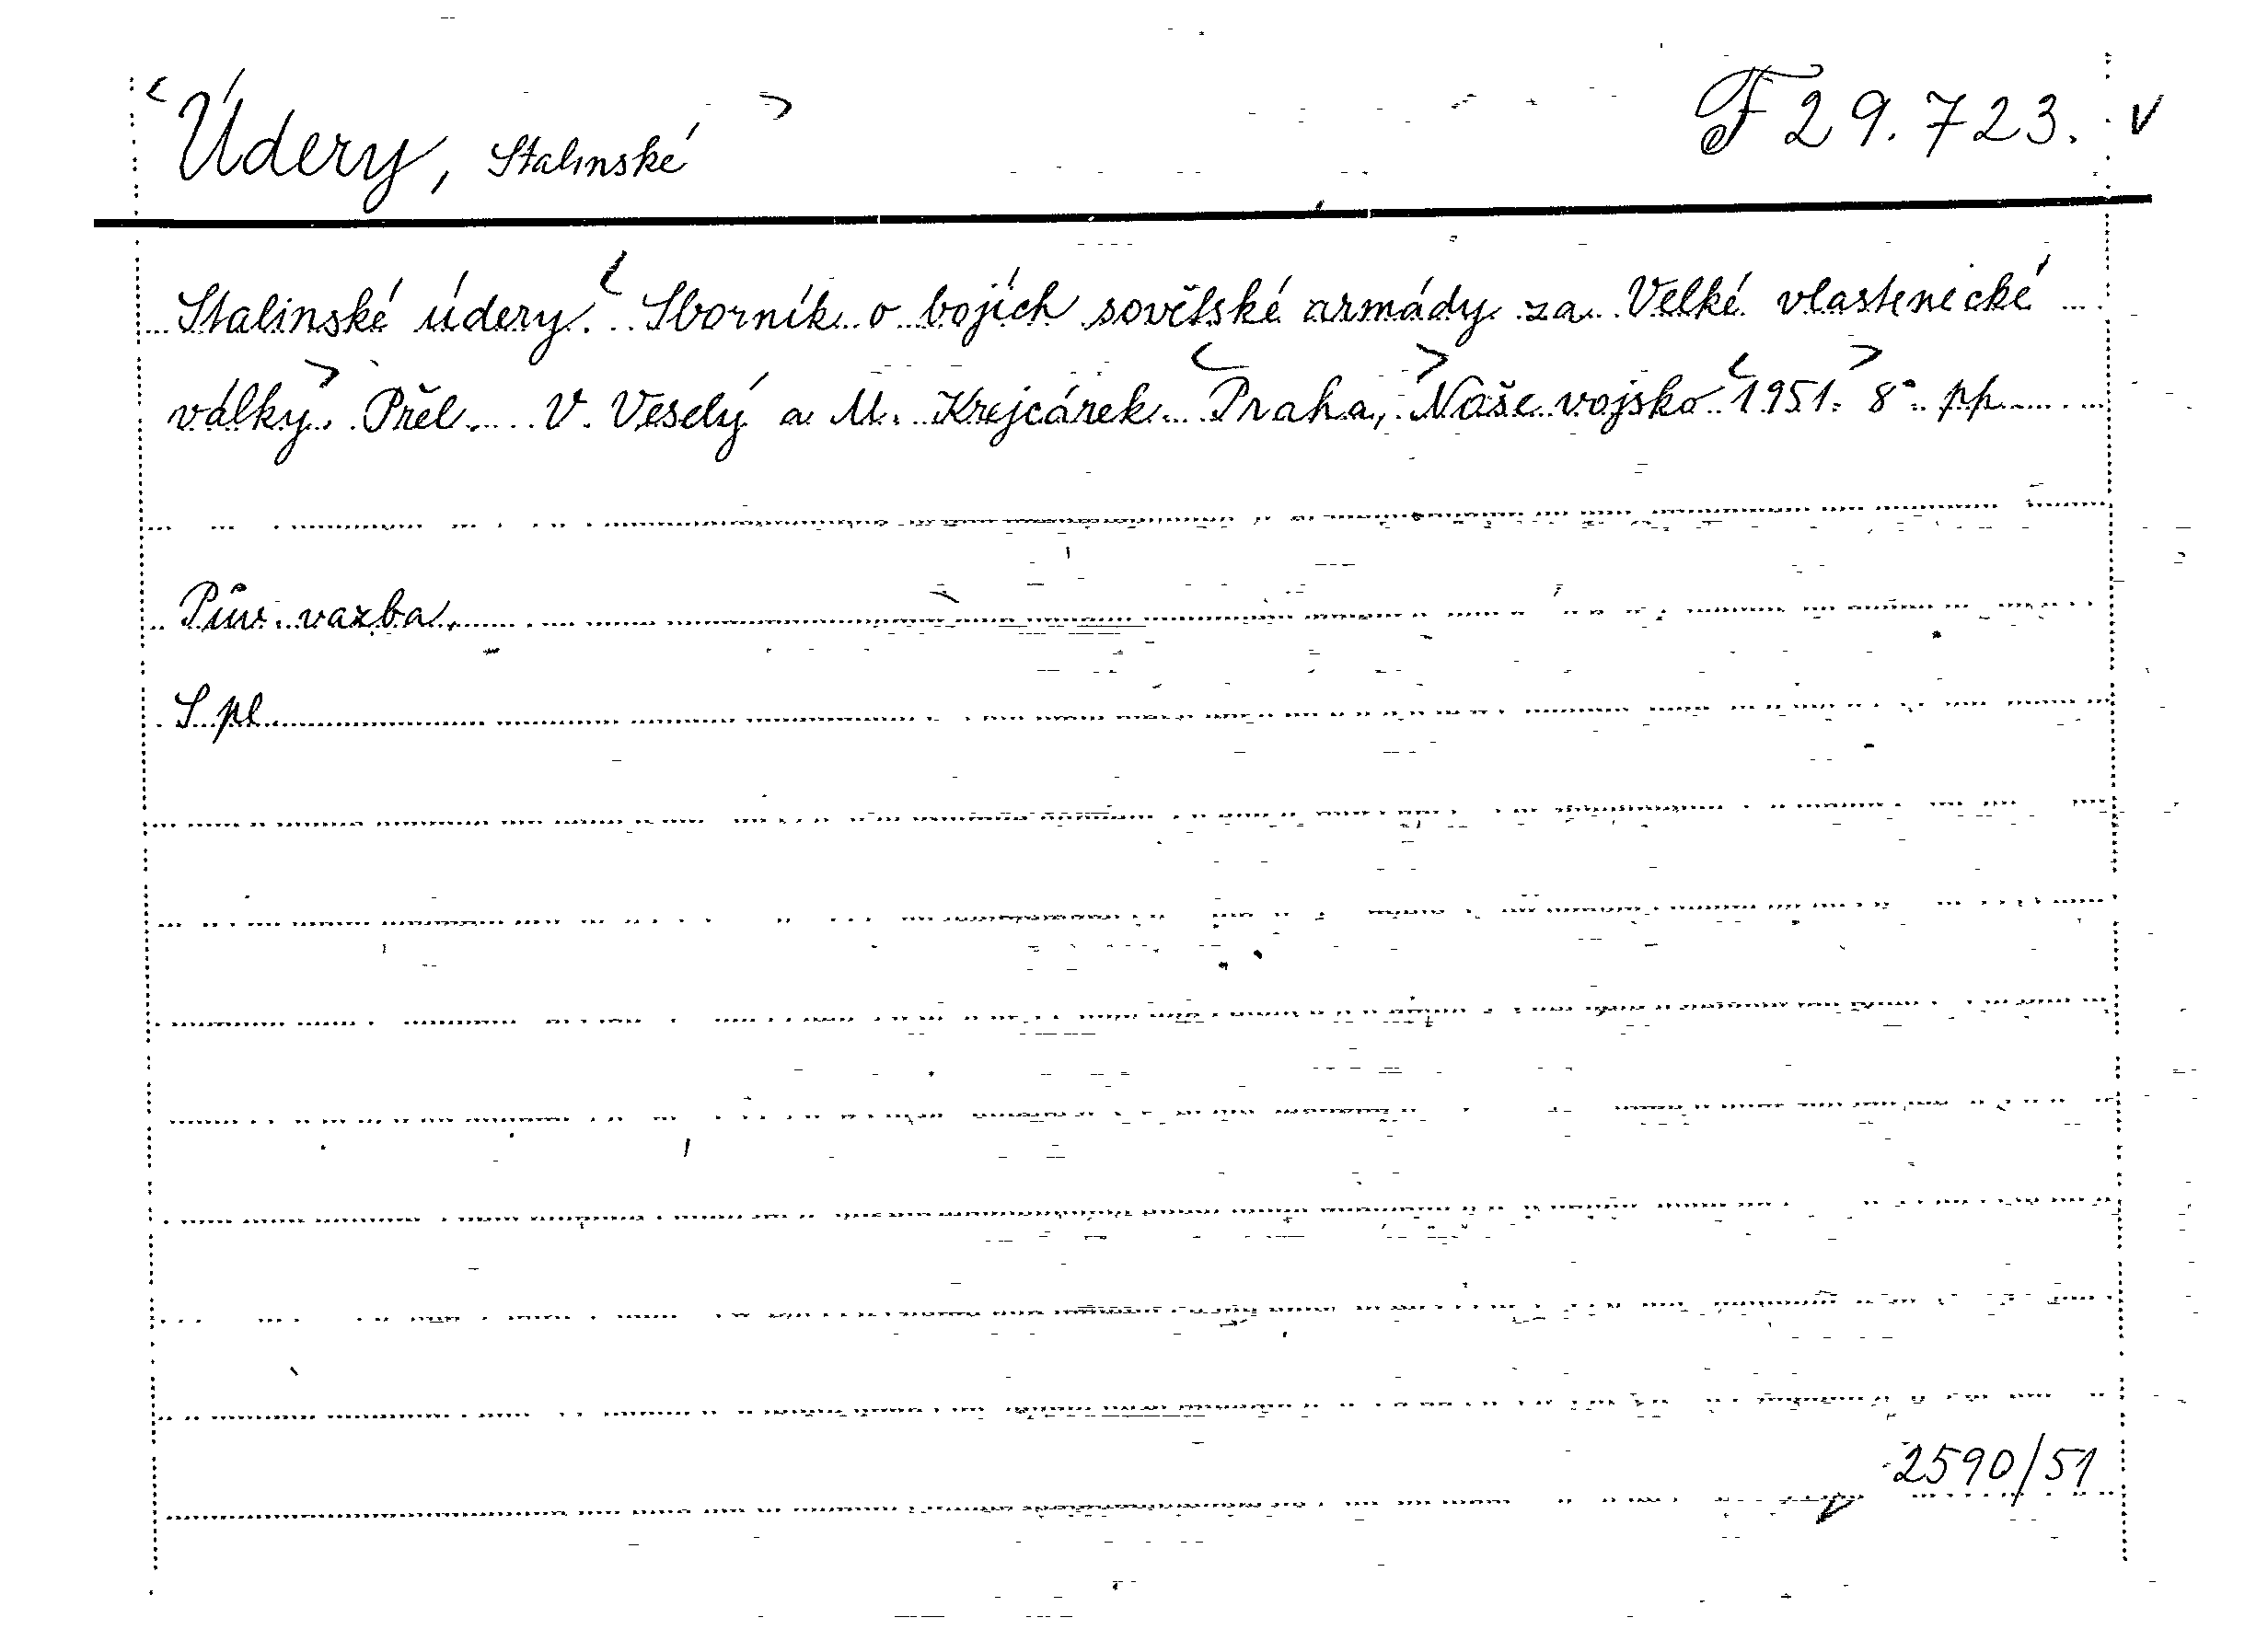 Údery, Stalinské F 29.723. v
Stalinské údery. Sborník o bojích sovětské armády za Velké vlastenecké
války. Přel. V. Veselý a M. Krejcárek. Praha, Naše vojsko 1951. 8° pp
Pův. vazba.
S pl
2590/51